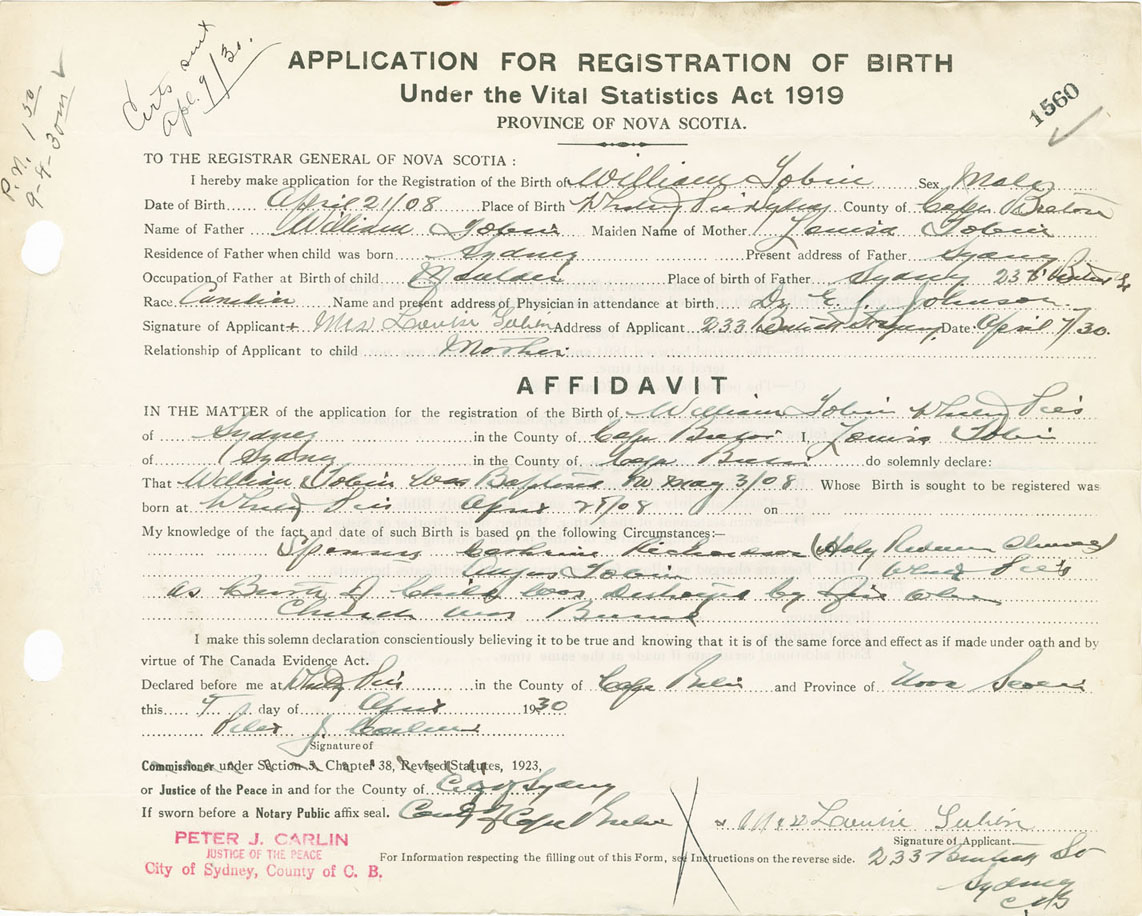 Certs sent
Apl. 9/30.
P.N. 1 50
9-4-30
1560
APPLICATION FOR REGISTRATION OF BIRTH
Under the Vital Statistics Act 1919
PROVINCE OF NOVA SCOTIA.
TO THE REGISTRAR GENERAL OF NOVA SCOTIA :
I hereby make application for the Registration of the Birth of William Tobin Sex Male
Date of Birth April 21/08 Place of Birth Whitney Pier Sydney County of Cape Breton
Name of Father William Tobin Maiden Name of Mother Louisa Tobin
Residence of Father when child was born Sydney Present address of Father Sydney
Occupation of Father at Birth of child Moulder Place of birth of Father Sydney 233
Race Canadian Name and present address of Physician in attendance at birth Dr E. Johnson
Signature of Applicant Mrs Louise Tobin Address of Applicant 233 Sydney Date April 7/30.
Relationship of Applicant to child Mother
AFFIDAVIT
IN THE MATTER of the application for the registration of the Birth of William Tobin Whitney Pier
of Sydney in the County of Cape Breton I, Louisa Tobin
of Sydney in the County of Cape Breton do solemnly declare:
That William Tobin was Baptised May 3/08 Whose Birth is sought to be registered was
born at Whitney Pier April 21/08 on
My knowledge of the fact and date of such Birth is based on the following Circumstances:—
Sponsors Catherine (Holy Redeemer Church)
Angus Tobin Whitney Pier
as Birth of Child was destroyed by fire when
Church was Burned
I make this solemn declaration conscientiously believing it to be true and knowing that it is of the same force and effect as if made under oath and by
virtue of The Canada Evidence Act.
Declared before me at Whitney Pier in the County of Cape Breton and Province of Nova Scotia
this 7 day of April 1930
Peter J Carlin
Signature of
Commissioner under Section 3, Chapter 38, Revised Statutes, 1923,
or Justice of the Peace in and for the County of City of Sydney
If sworn before a Notary Public affix seal. County of Cape Breton
Mrs Louise Tobin
Signature of Applicant.
PETER J. CARLIN
JUSTICE OF THE PEACE
City of Sydney, County of C. B.
For Information respecting the filling out of this Form, see Instructions on the reverse side.
233 St
Sydney
C B